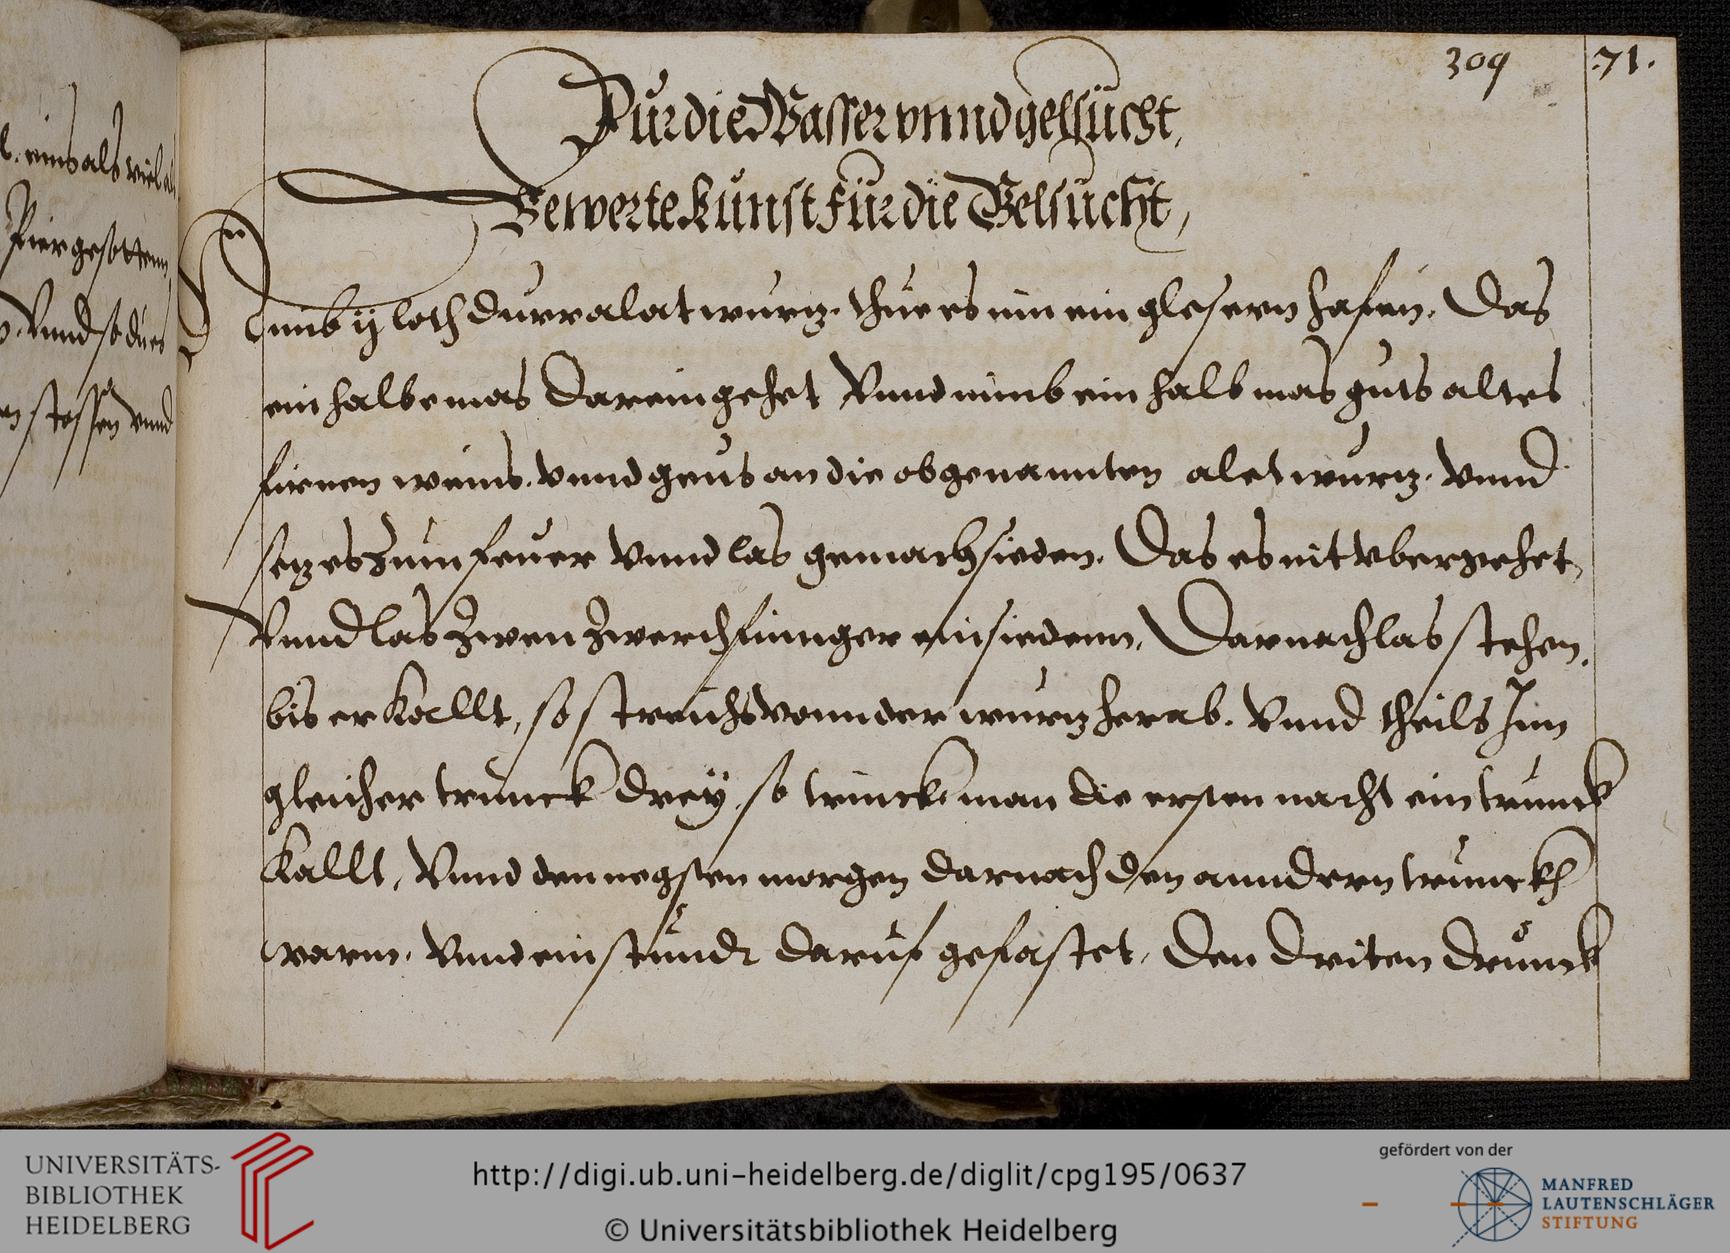 309 71.
Für die Wasser vnnd gelsücht,
Bewerte kunst für die Gelsücht,
Nimb ij loth durr alatwurz. thue es inn ein glesern hafen. Das
ein halbe mas darein gehet Vnnd nimb ein halb mas guts altes
firnen weins. vnnd geus an die obgenannten aletwurz. vnnd
setz es zum feuer vnnd las gemach sieden. Das es nit vbergehet,
Vnnd las zwen zwerchfinger einsiedenn, Darnach las stehen,
bis er kallt, so streichs vonn der wurz herab. Vnnd theils Jnn
gleicher trunck drey, so trinckh man die ersten nacht ein trunck
kallt, Vnnd den negsten morgen darnach den anndern trunckh
warm. Vnnd ein stundt daruf gefastet, den driten drunck
eins als viel
Bier gesottenn
Vnnd so
stossen vnnd
UNIVERSITÄTS-
BIBLIOTHEK
HEIDELBERG
http://digi.ub.uni-heidelberg.de/diglit/cpg195/0637
© Universitätsbibliothek Heidelberg
gefördert von der
MANFRED
LAUTENSCHLÄGER
STIFTUNG